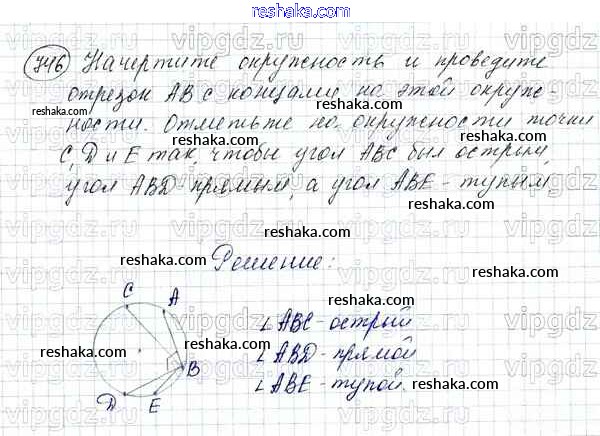 reshaka.com
746 Начертите окружность и проведите
отрезок АВ с концами на этой окруж-
ности. Отметьте на окружности точки
С, D и Е так, чтобы угол АВС был острым,
угол ABD прямым, а угол АВЕ - тупым.
Решение:
C
A
B
D
E
∠ АВС - острый
∠ ABD - прямой
∠ АВЕ - тупой.
reshaka.com
vipgdz.ru